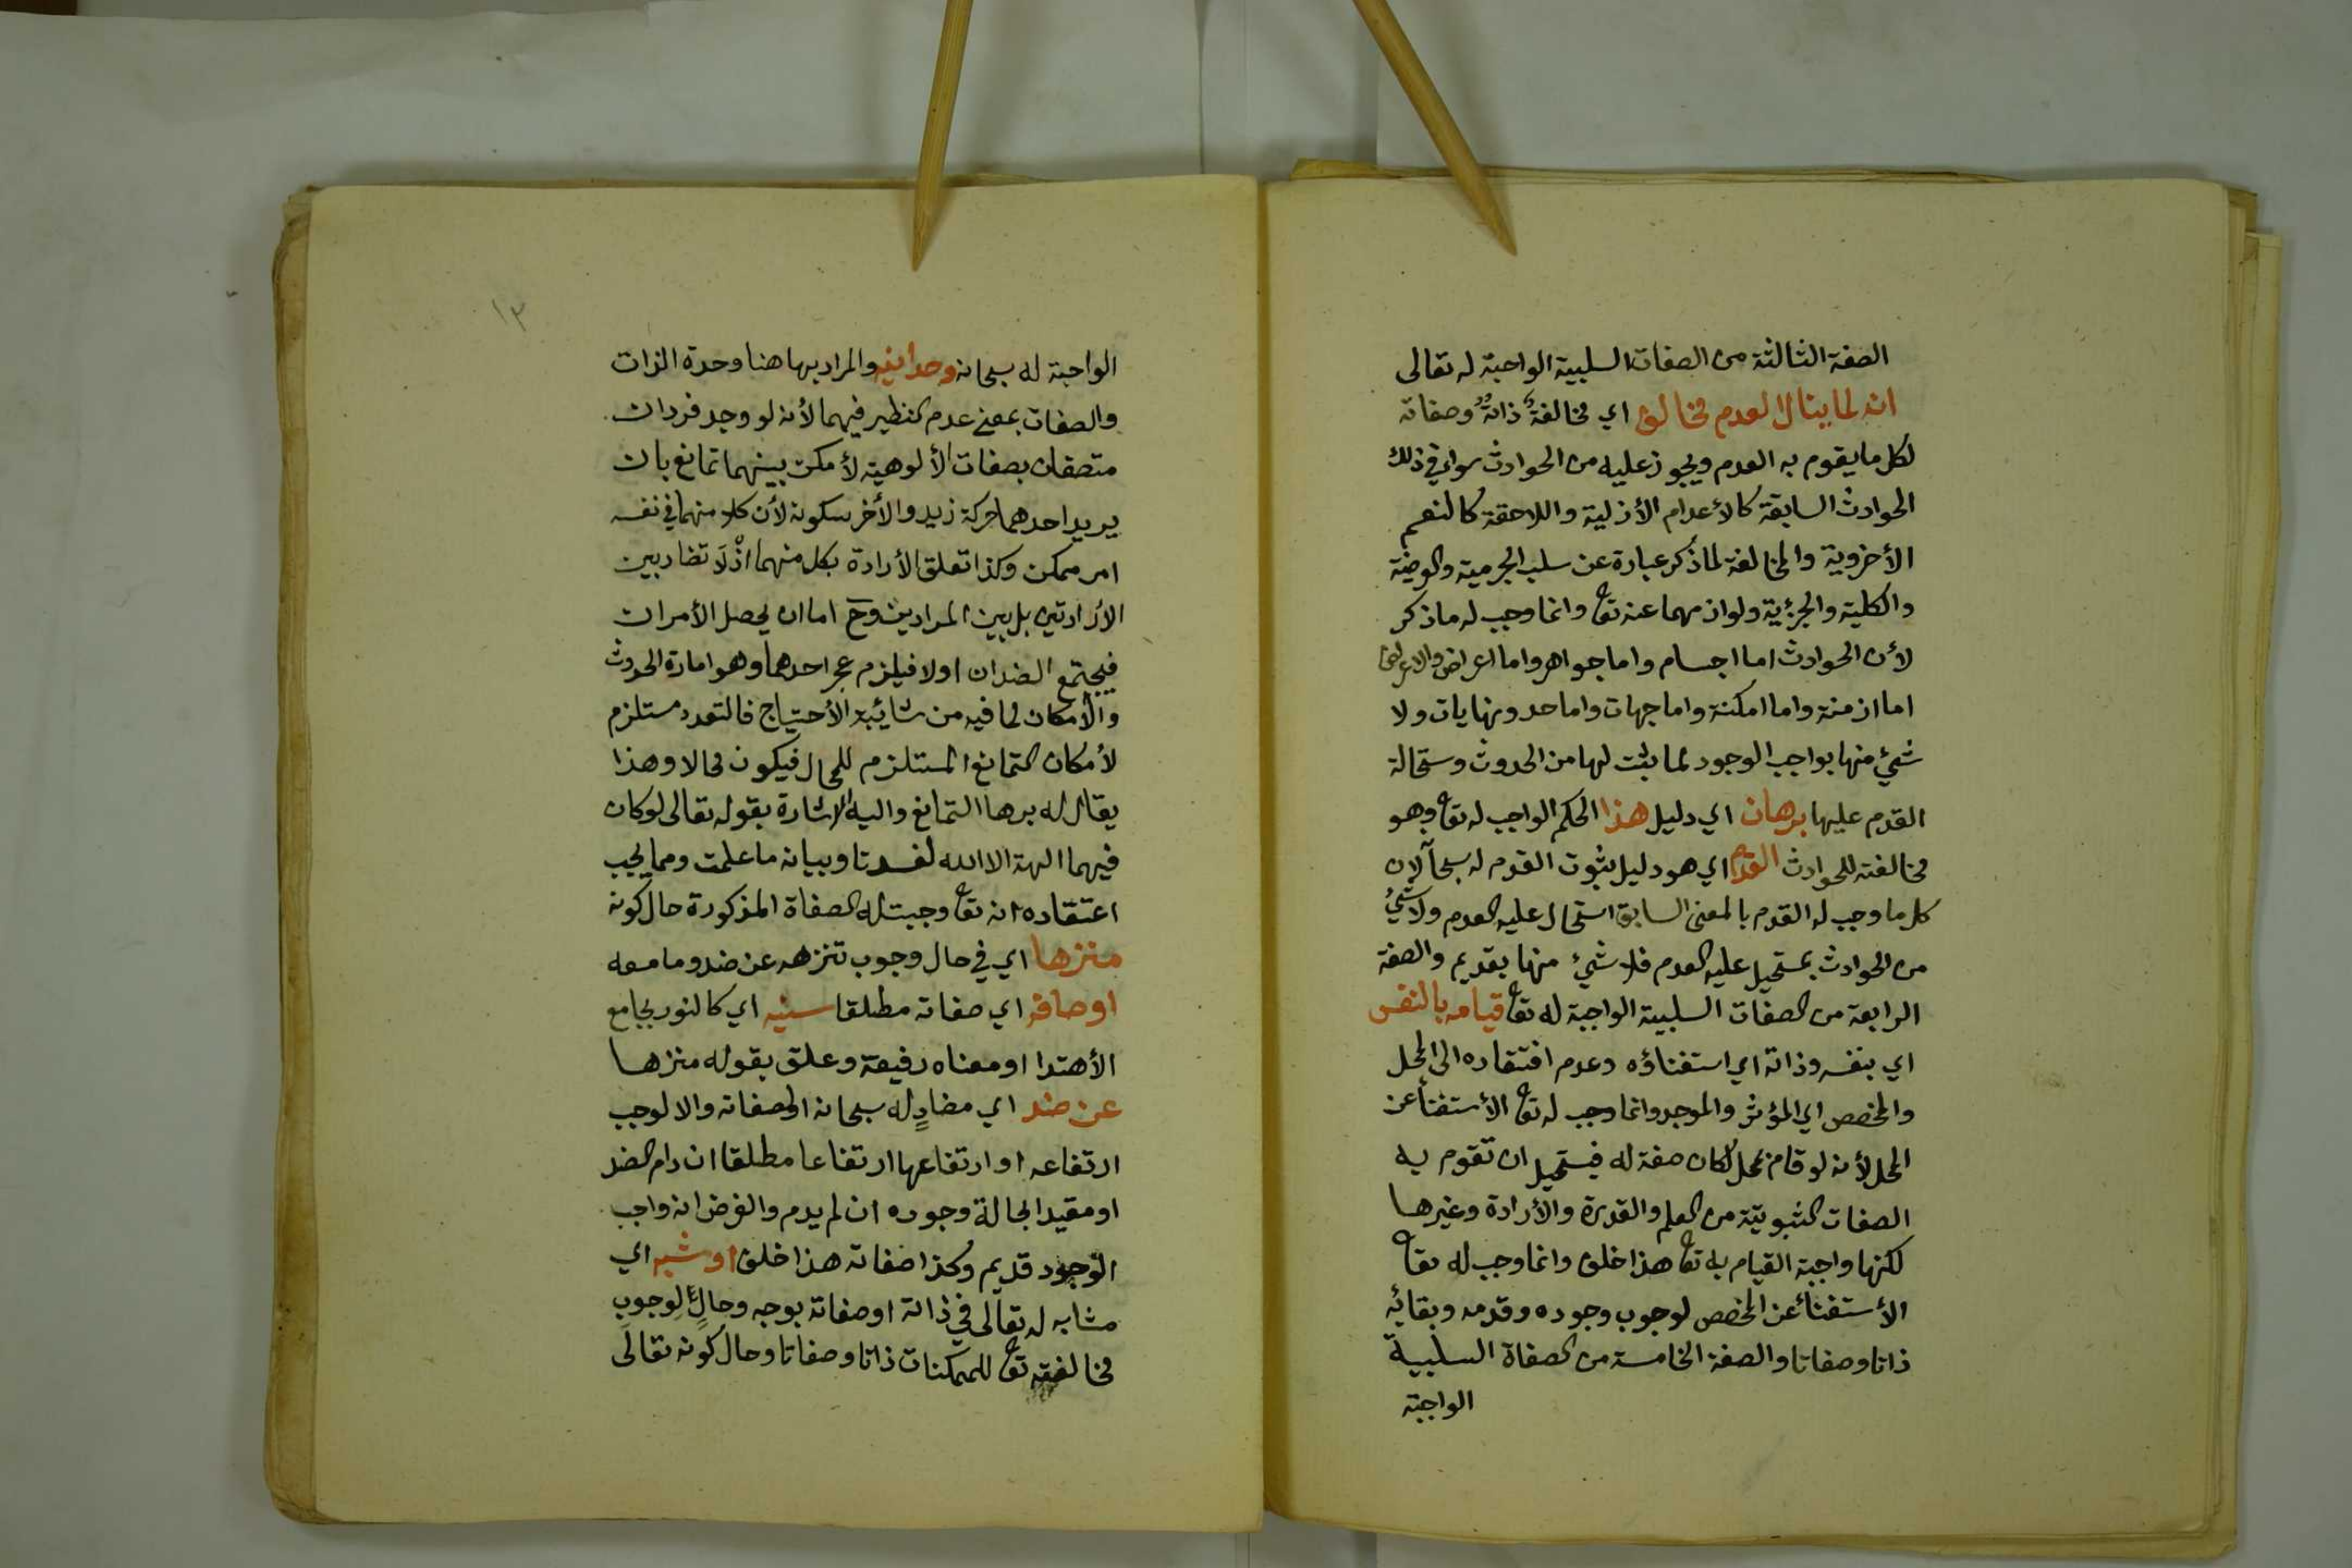 الصفة الثالثة من الصفات السلبية الواجبة له تعالى
انه لما ينال العدم مخالف اي مخالفة ذاته وصفاته
لكل ما يقوم به العدم ويجوز عليه من الحوادث سواء في ذلك
الحوادث السابقة كالأعدام الأزلية واللاحقة كالنعيم
الأخروية والمخالفة لما ذكر عبارة عن سلب الجرمية والعرضية
والكلية والجزئية ولوازمهما عنه تعا وانما وجب له ما ذكر
لأن الحوادث اما اجسام واما جواهر واما اعراض والاعراض
اما ازمنة واما امكنة واما جهات واما حدو ونهايات ولا
شيئ منها بواجب الوجود لما ثبت لها من الحدوث وستحالة
القدم عليها برهان اي دليل هذا الحكم الواجب له تعا وهو
مخالفته للحوادث القدم اي هو دليل ثبوت القدم له سبحا لان
كل ما وجب له القدم بالمعنى السابق استحال عليه العدم ولا شيئ
من الحوادث بمستحيل عليه العدم فلا شيئ منها بقديم والصفة
الرابعة من الصفات السلبية الواجبة له تعا قيامه بالنفس
اي بنفسه وذاته اي استغناؤه وعدم افتقاره الى المحل
والمخصص اي المؤثر والموجد وانما وجب له تعا الأستغنأ عن
المحل لأنه لو قام بمحل لكان صفة له فيستحيل ان تقوم به
الصفات الثبوتية من العلم والقدرة والأرادة وغيرها
لكنها واجبة القيام به تعا هذا خلف وانما وجب له تعا
الأستغنأ عن المخصص لوجوب وجوده وقدمه وبقائه
ذاتا وصفاتا والصفة الخامسة من الصفاة السلبية
الواجبة
١٣
الواجبة له سبحانه وحدانيه والمراد بها هنا وحدة الذات
والصفات بمعنى عدم النظير فيهما لأنه لو وجد فردان
متصفان بصفات الألوهية لأمكن بينهما تمانع بان
يريد احدهما حركة زيد والأخر سكونه لأن كلا منهما في نفسه
امر ممكن وكذا تعلق الأرادة بكل منهما اذ لا تضاد بين
الأرادتين بل بين المرادين وح اما ان يحصل الأمران
فيجتمع الضدان اولا فيلزم عجز احدهما وهو امارة الحدوث
والأمكان لما فيه من شائبة الأحتياج فالتعدد مستلزم
لأمكان التمانع المستلزم للمحال فيكون محالا وهذا
يقال له برها التمانع واليه الاشارة بقوله تعالى لو كان
فيهما الهة الا الله لفسدتا وبيانه ما علمت ومما يجب
اعتقاده انه تعا وجبت له الصفاة المذكورة حال كونه
منزها اي في حال وجوب تنزهه عن ضد وما معه
اوصافه اي صفاته مطلقا سنيه اي كالنور بجامع
الأهتدا او معناه رفيعة وعلق بقوله منزها
عن ضد اي مضادٍ له سبحانه او لصفاته والا لوجب
ارتفاعه او ارتفاعها ارتفاعا مطلقا ان دام الضد
او مقيدا بحالة وجوده ان لم يدم والفرض انه واجب
الوجود قديم وكذا صفاته هذا خلف او شبه اي
مشابه له تعالى في ذاته او صفاته بوجه وحالٍ لوجوب
مخالفته تعا للممكنات ذاتا وصفاتا وحال كونه تعالى